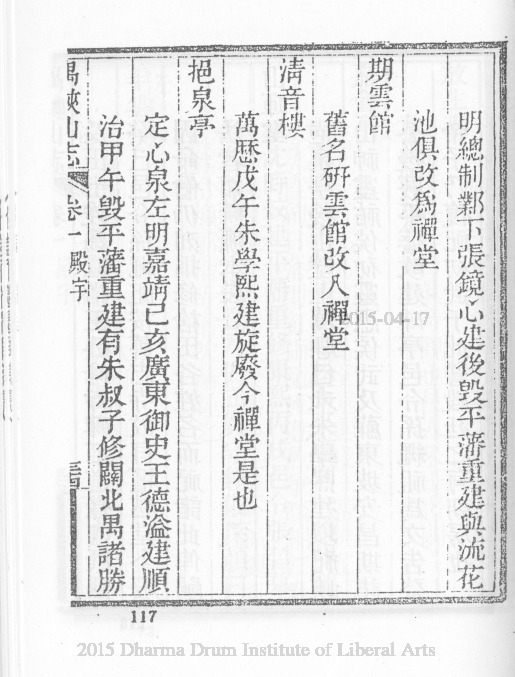 明總制鄴下張鏡心建後毀平藩重建與流花
池俱改爲禪堂
期雲館
舊名硏雲館改入禪堂
淸音樓
萬歷戊午朱學熙建旋廢今禪堂是也
挹泉亭
定心泉左明嘉靖己亥廣東御史王德溢建順
治甲午毀平藩重建有朱叔子修闢北禺諸勝
禺峽山志 卷一 殿宇
2015-04-17
117
2015 Dharma Drum Institute of Liberal Arts